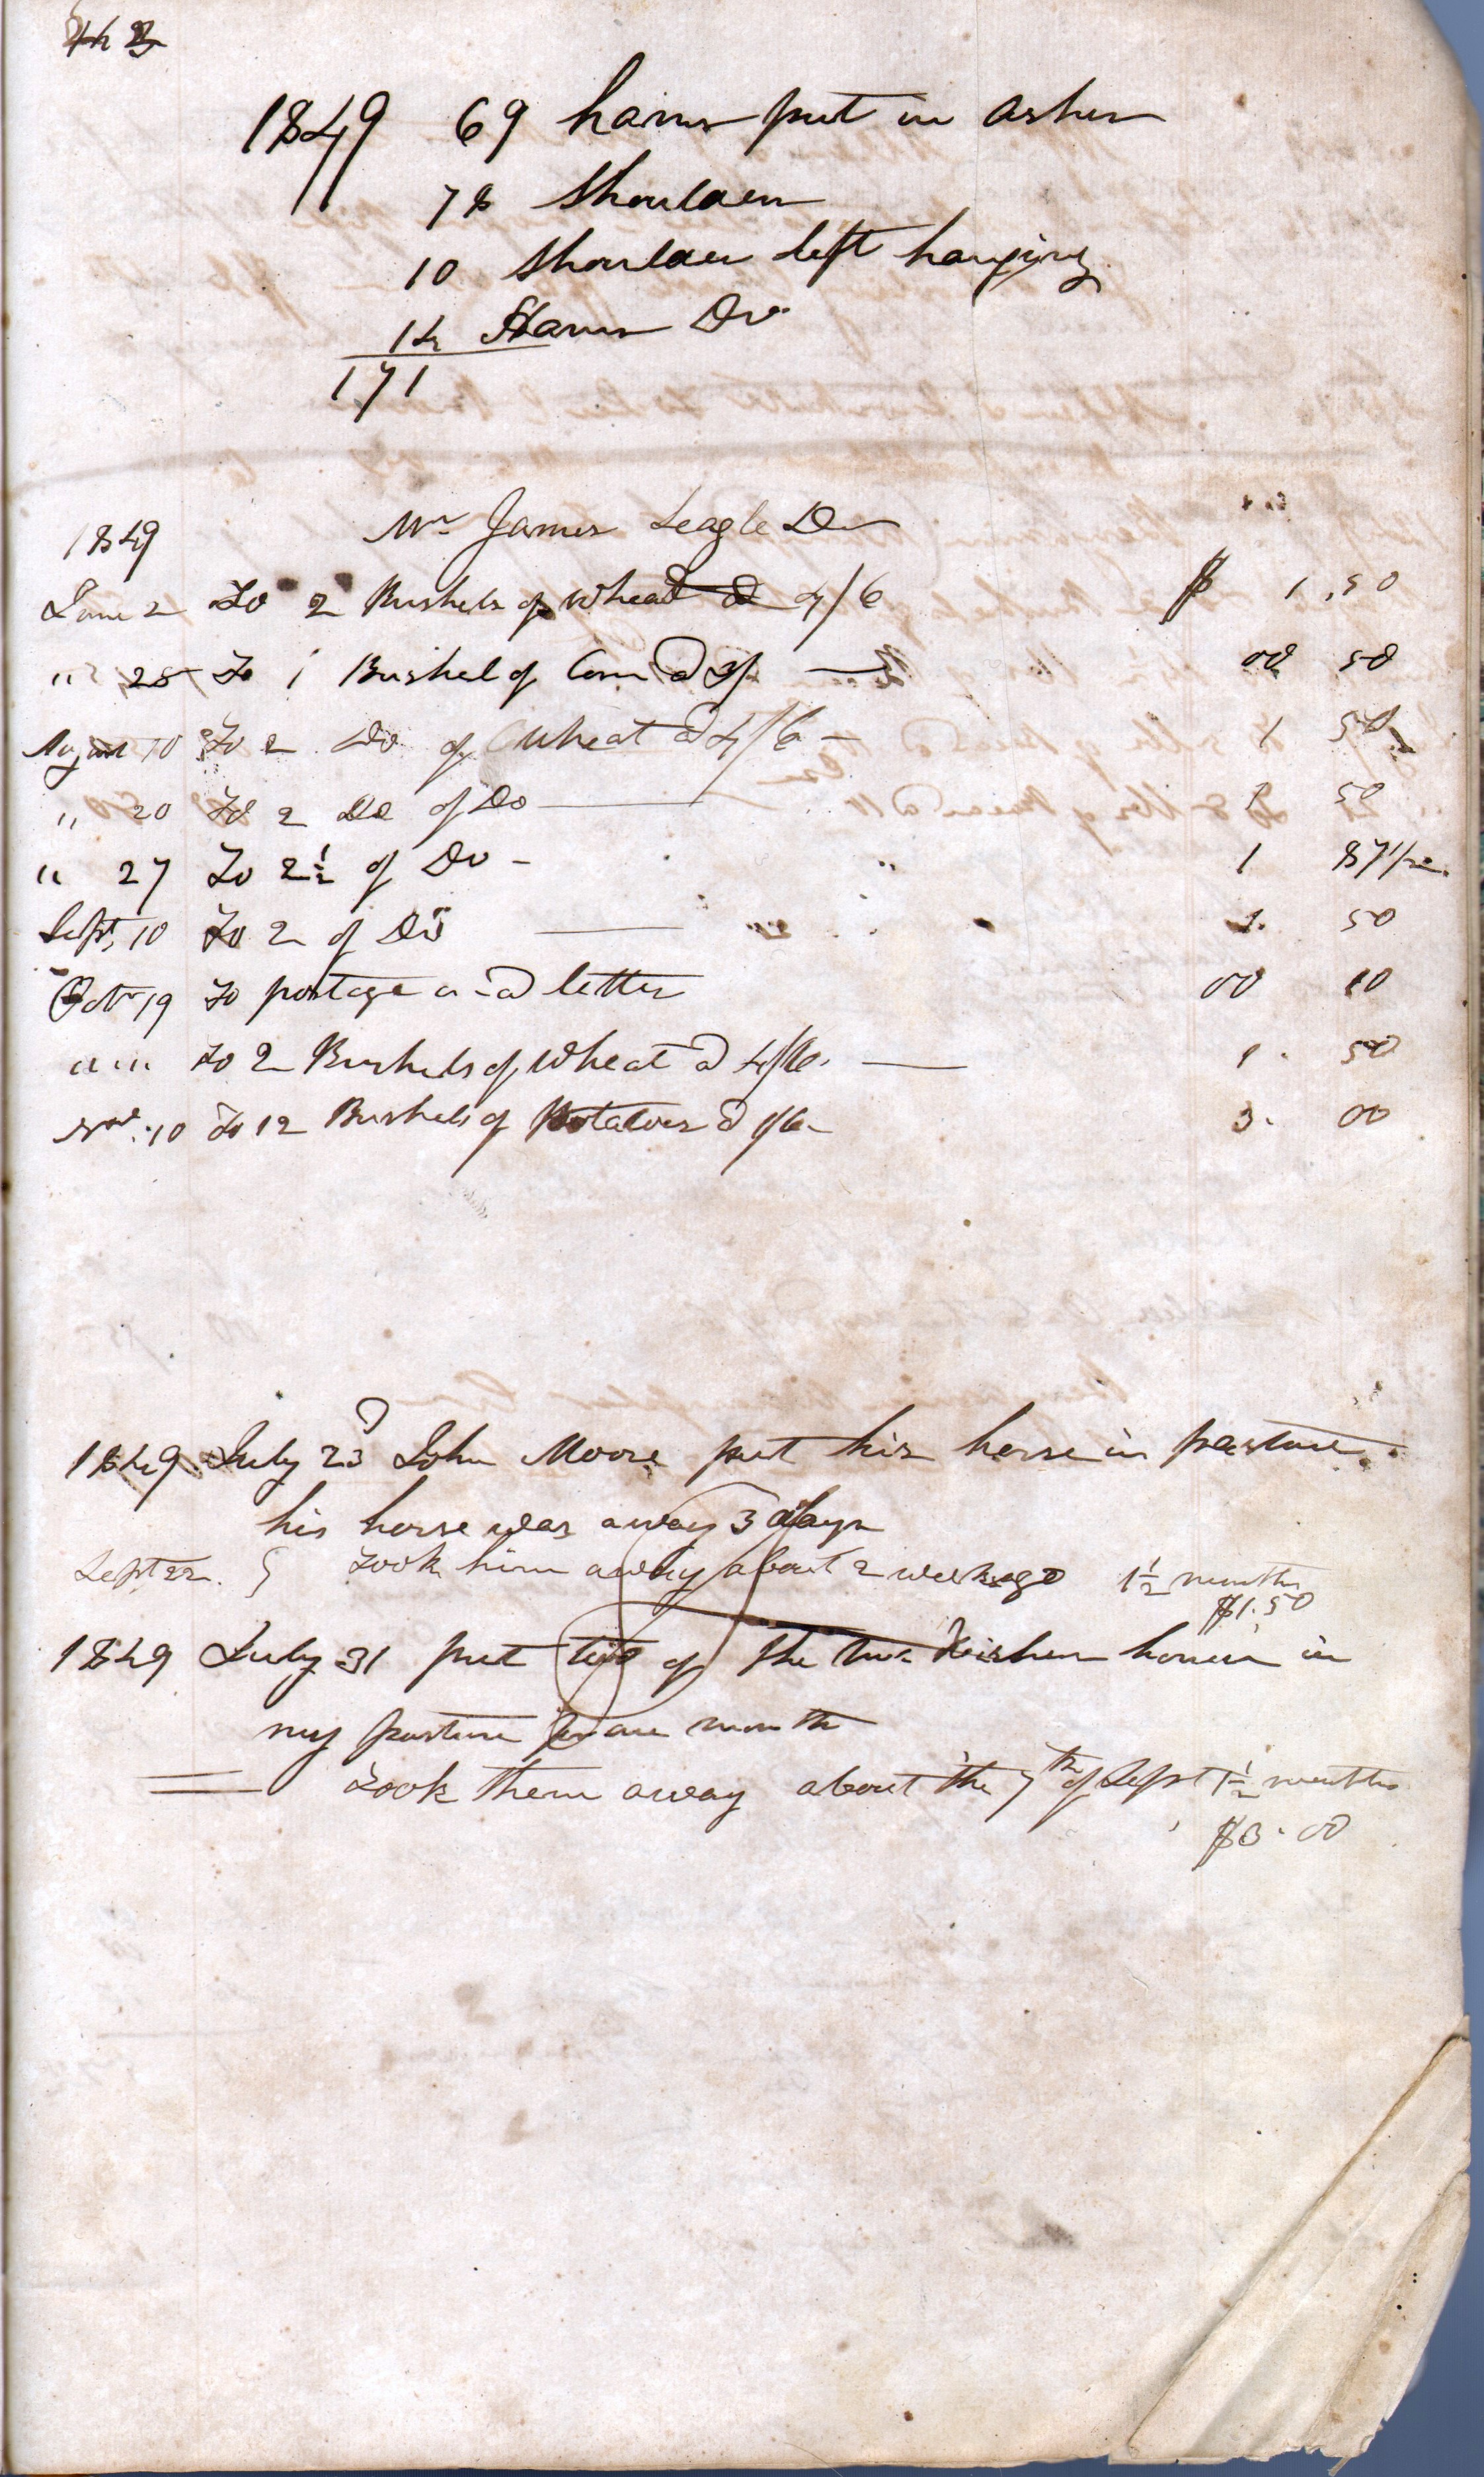 1849 69 hams put in ashes
78 Shoulders
10 Shoulders left hanging
14 Hams Do
171
1849 Mr James Seagle Dr
June 2 To 2 Bushels of Wheat @ 4/6 $ 1.50
" 28 To 1 Bushel of Corn @ 3/ — 00 50
August 10 To 2 Do of Wheat @ 4/6 — 1 50
" 20 To 2 Do of Do — 1 50
" 27 To 2½ of Do - 1 87 1/2
Sept. 10 To 2 of Do — 1. 50
Octr 19 To postage on a letter 00 10
" " To 2 Bushels of Wheat @ 4/6. — 1. 50
Nov. 10 To 12 Bushels of Potatoes @ 1/6 - 3. 00
1849 July 23 John Moore put his horse in pasture
his horse was away 3 days
Sept 22. took him away about 2 weeks ago 1½ months
$1.50
1849 July 31 put two of the horses in
my pasture for one month
took them away about the 7th of Sept 1½ months
$3.00